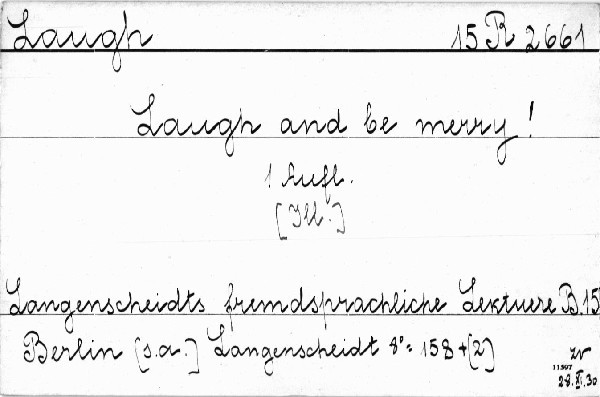 Laugh 15 R 2661
Laugh and be merry!
1 Aufl.
[Ill.]
Langenscheidts fremdsprachliche Lektuere B.15
Berlin [s.a.] Langenscheidt 8°= 158+(2)
zv
11597
28.XI.30